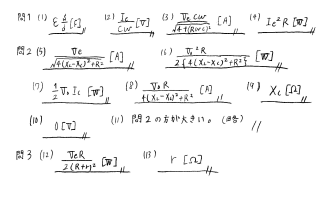 問1 (1) ε d/d [F] (2) Ie/Cω [V] (3) Ve Cω/√4+(Rωc)² [A] (4) Ie²R [W]
問2 (5) Ve/√4(XL-Xc)²+R² [A] (6) Ve²R/2{4(XL-Xc)²+R²} [W]
(7) 1/2 Vo Ic [W] (8) VoR/4(XL-Xc)²+R² [A] (9) XL [Ω]
(10) 0 [V] (11) 問2の方が大きい。(答)
問3 (12) VeR/2(R+r)² [W] (13) r [Ω]